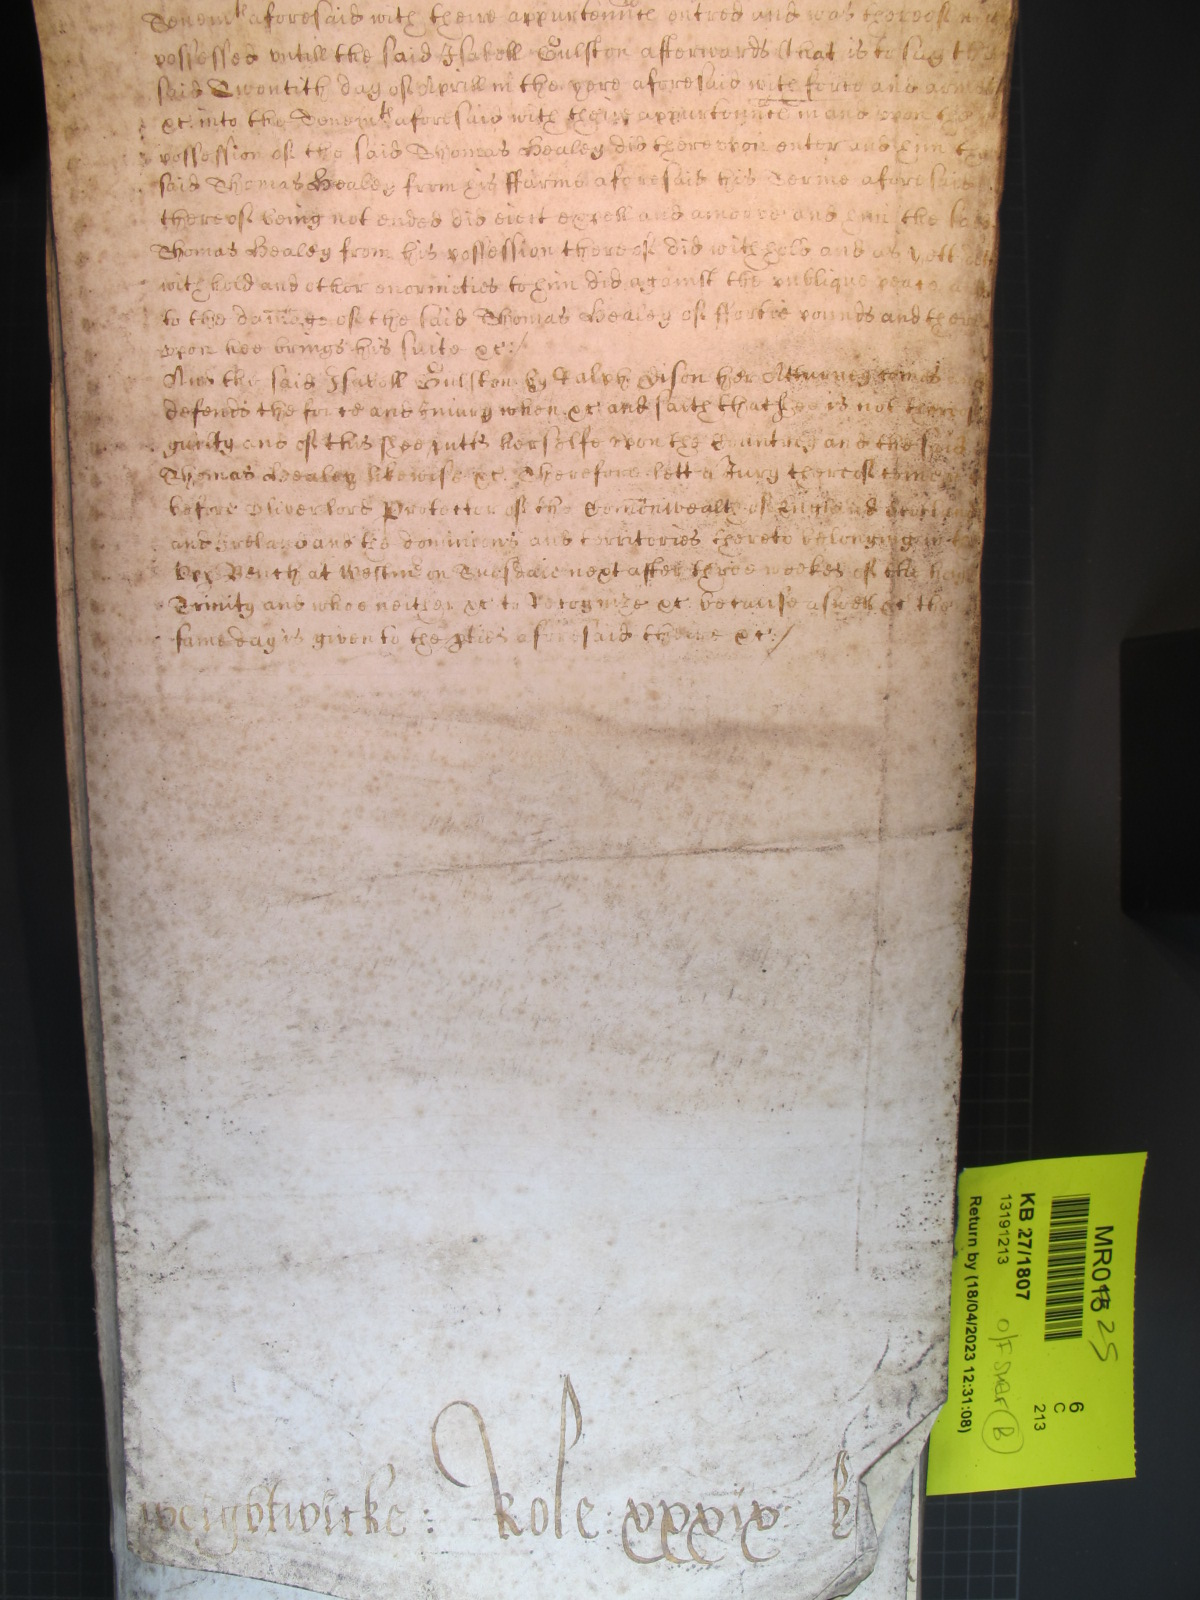 Tenemts aforesaid with theire appurtenncs entred and was thereof
possessed vntill the said Isabell Gulston afterwards that is to say the
said Twentith day of Aprill in the yere aforesaid with force and armes
&c into the Tenemts aforesaid with theire appurtenncs in and vpon the
possession of the said Thomas Healey did therevpon enter and him the
said Thomas Healey from his ffarme aforesaid his Terme aforesaid
thereof being not ended did eiect expell and amoove and him the said
Thomas Healey from his possession thereof did withhold and as yett doth
withhold and other enormities to him did against the publique peace and
to the damage of the said Thomas Healey of ffortie pounds and there
vpon hee brings his suite &c:/
And the said Isabell Gulston by Ralph Dison her Atturney comes and
defends the force and Iniury when &c and saith that shee is not thereof
guilty and of this shee putts herselfe vpon the Countrey and the said
Thomas Healey likewise &c Therefore lett a Jury thereof come
before Oliver lord Protector of the Comonwealth of England Scotland
and Ireland and the dominions and territories thereto belonging in the
vpp Bench at Westmr on Tuesdaie next after three weekes of the holy
Trinity and whoe neither &c to Recognize &c because aswell &c the
same day is given to the pties aforesaid there &c:/
weightwicke: Role: xxxix
MR018 25
6
C
213
KB 27/1807
13191213
O/F Sher B
Return by (18/04/2023 12:31:08)